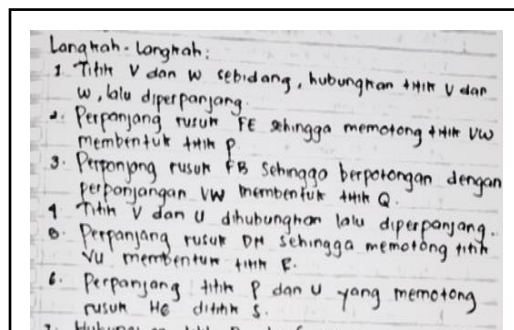 Langkah-Langkah:
1. Titik V dan W sebidang, hubungkan titik V dan
W, lalu diperpanjang.
2. Perpanjang rusuk FE sehingga memotong titik VW
membentuk titik P
3. Perpanjang rusuk FB Sehingga berpotongan dengan
perpanjangan VW membentuk titik Q.
4 Titik V dan U dihubungkan lalu diperpanjang.
5. Perpanjang rusuk DH sehingga memotong titik
VU membentuk titik R.
6. Perpanjang titik P dan U yang memotong
rusuk HG dititik S.